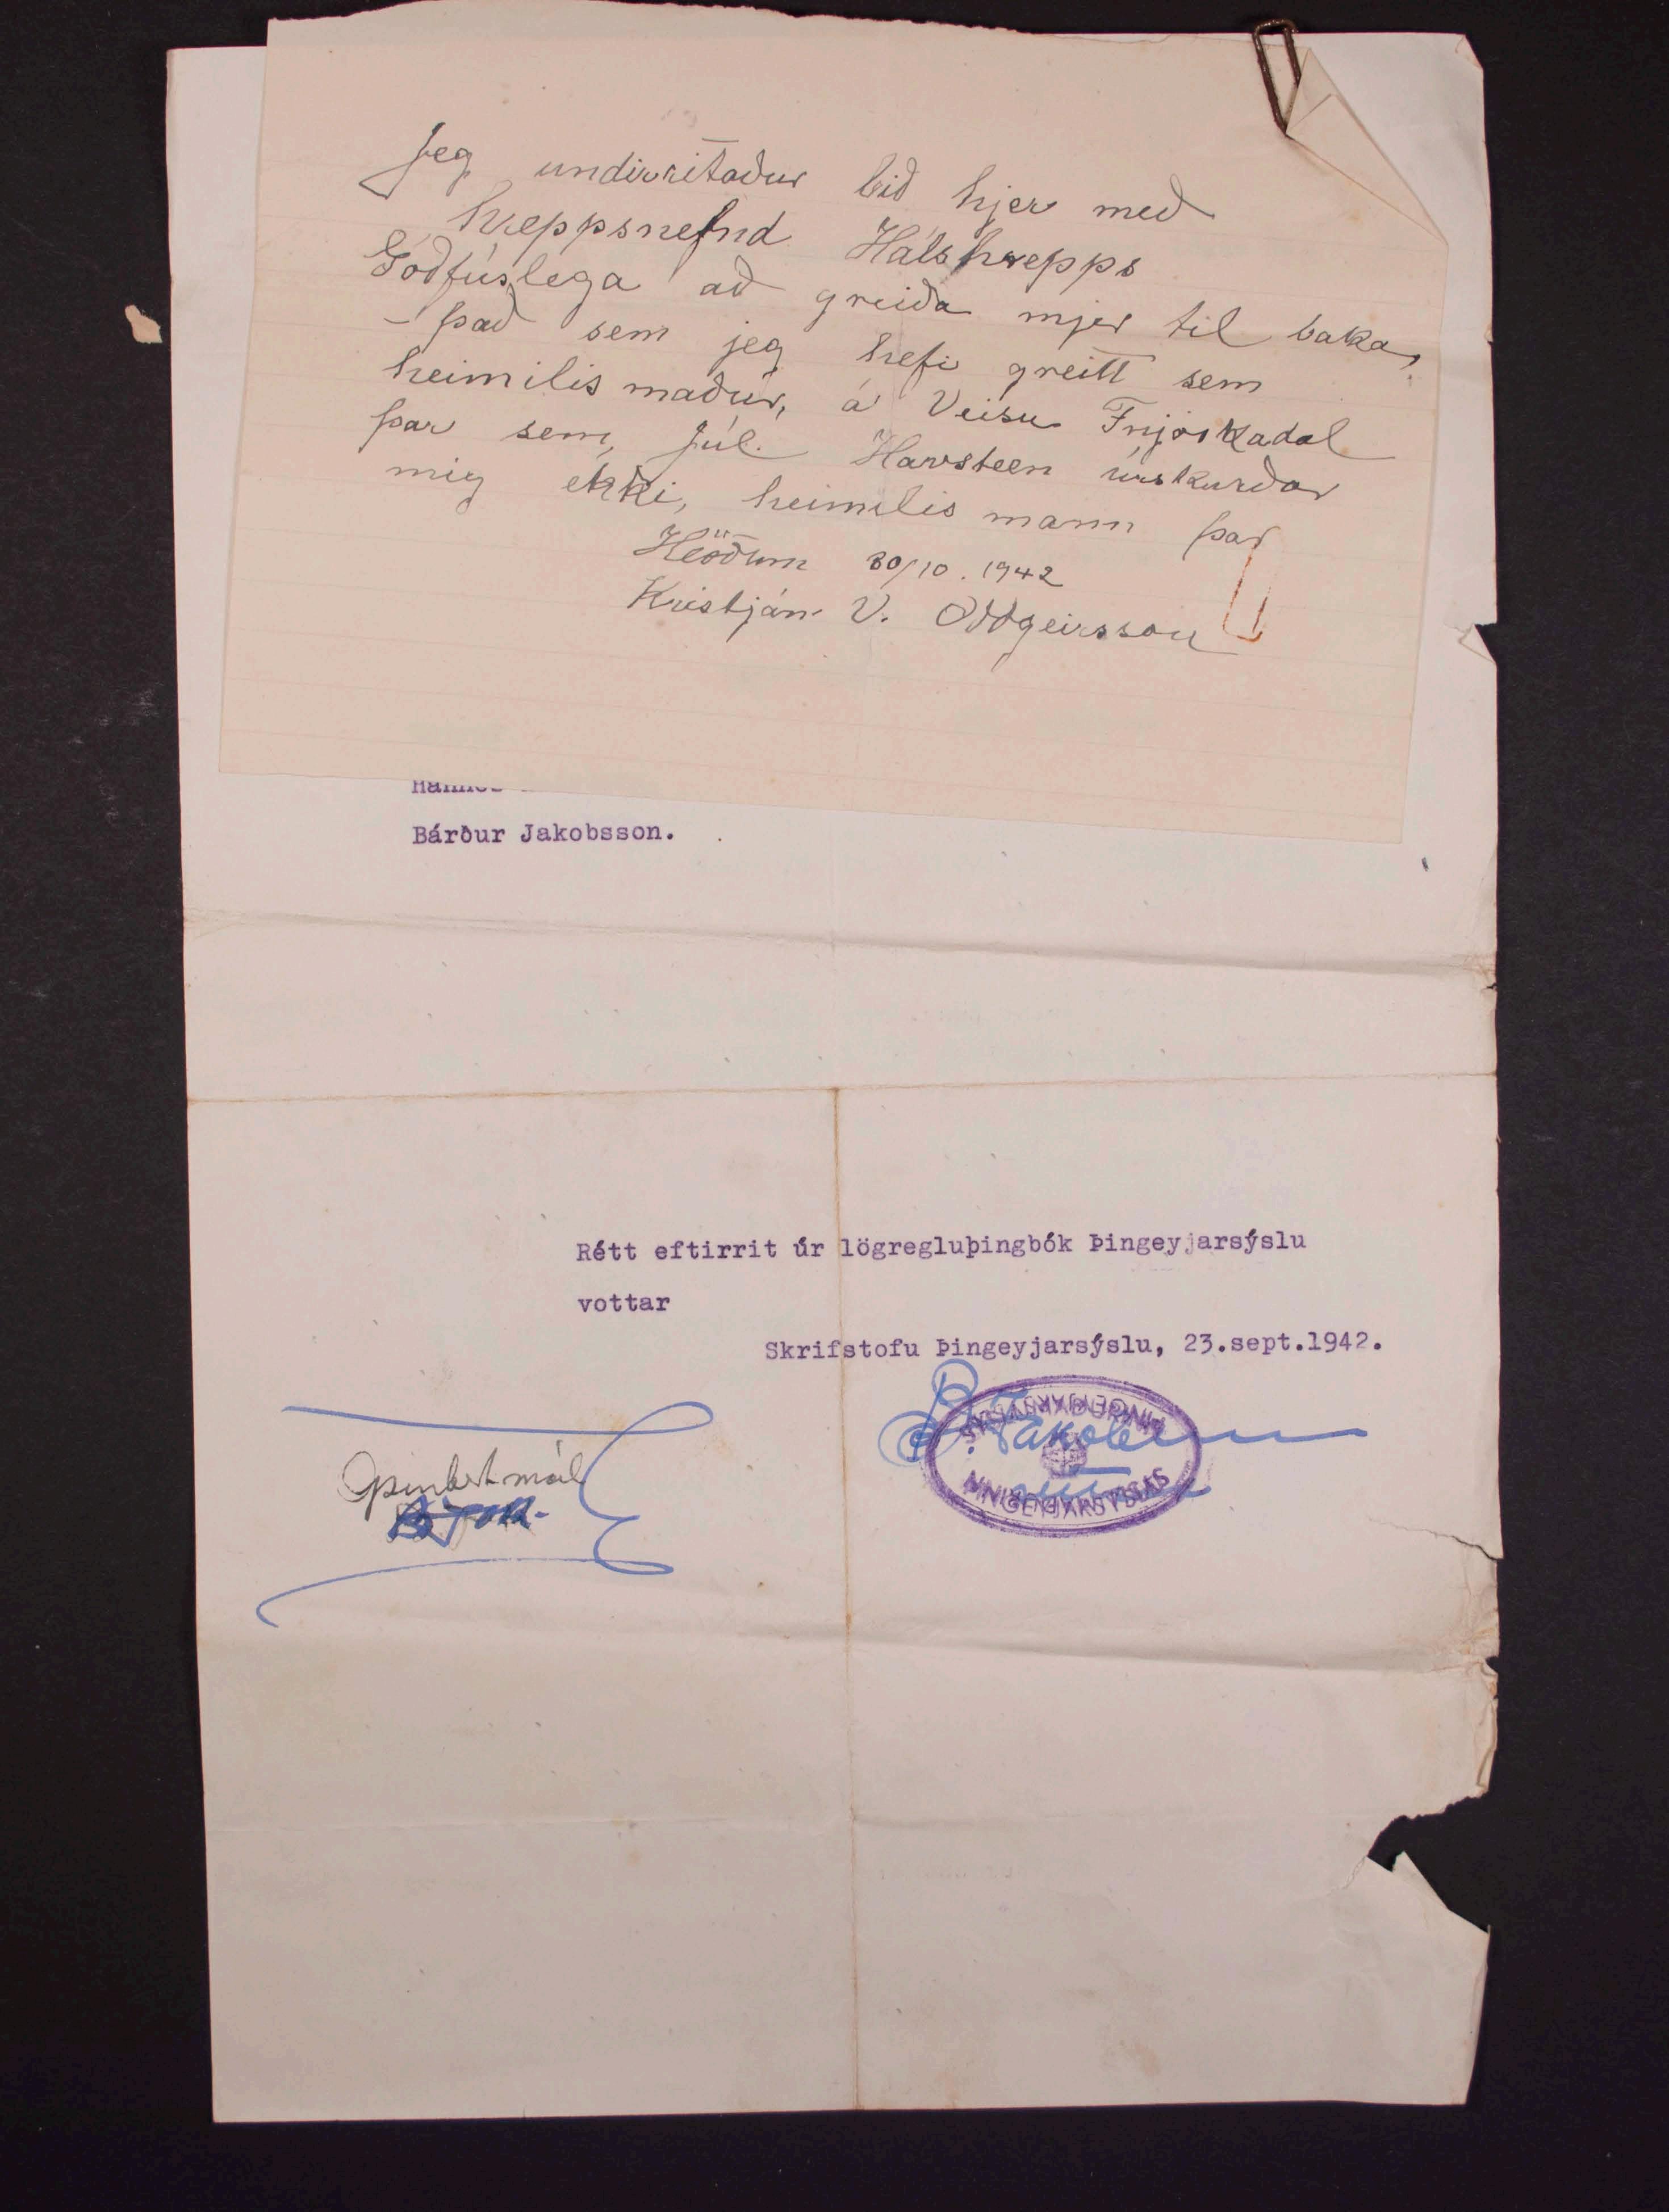 Jeg undirritaður bið hjer með
hreppsnefnd Hálshrepps
Góðfúslega að greiða mjer til baka,
- það sem jeg hefi greitt sem
heimilis maður, á Veisu Fnjóskadal
þar sem, Júl. Havsteen úrskurðar
mig ekki, heimilis mann þar
Hlöðum 30/10. 1942
Kristján V. Oddgeirsson
Bárður Jakobsson.
Rétt eftirrit úr lögregluþingbók Þingeyjarsýslu
vottar
Skrifstofu Þingeyjarsýslu, 23.sept.1942.
B. Jakobsson
Opinbert mál